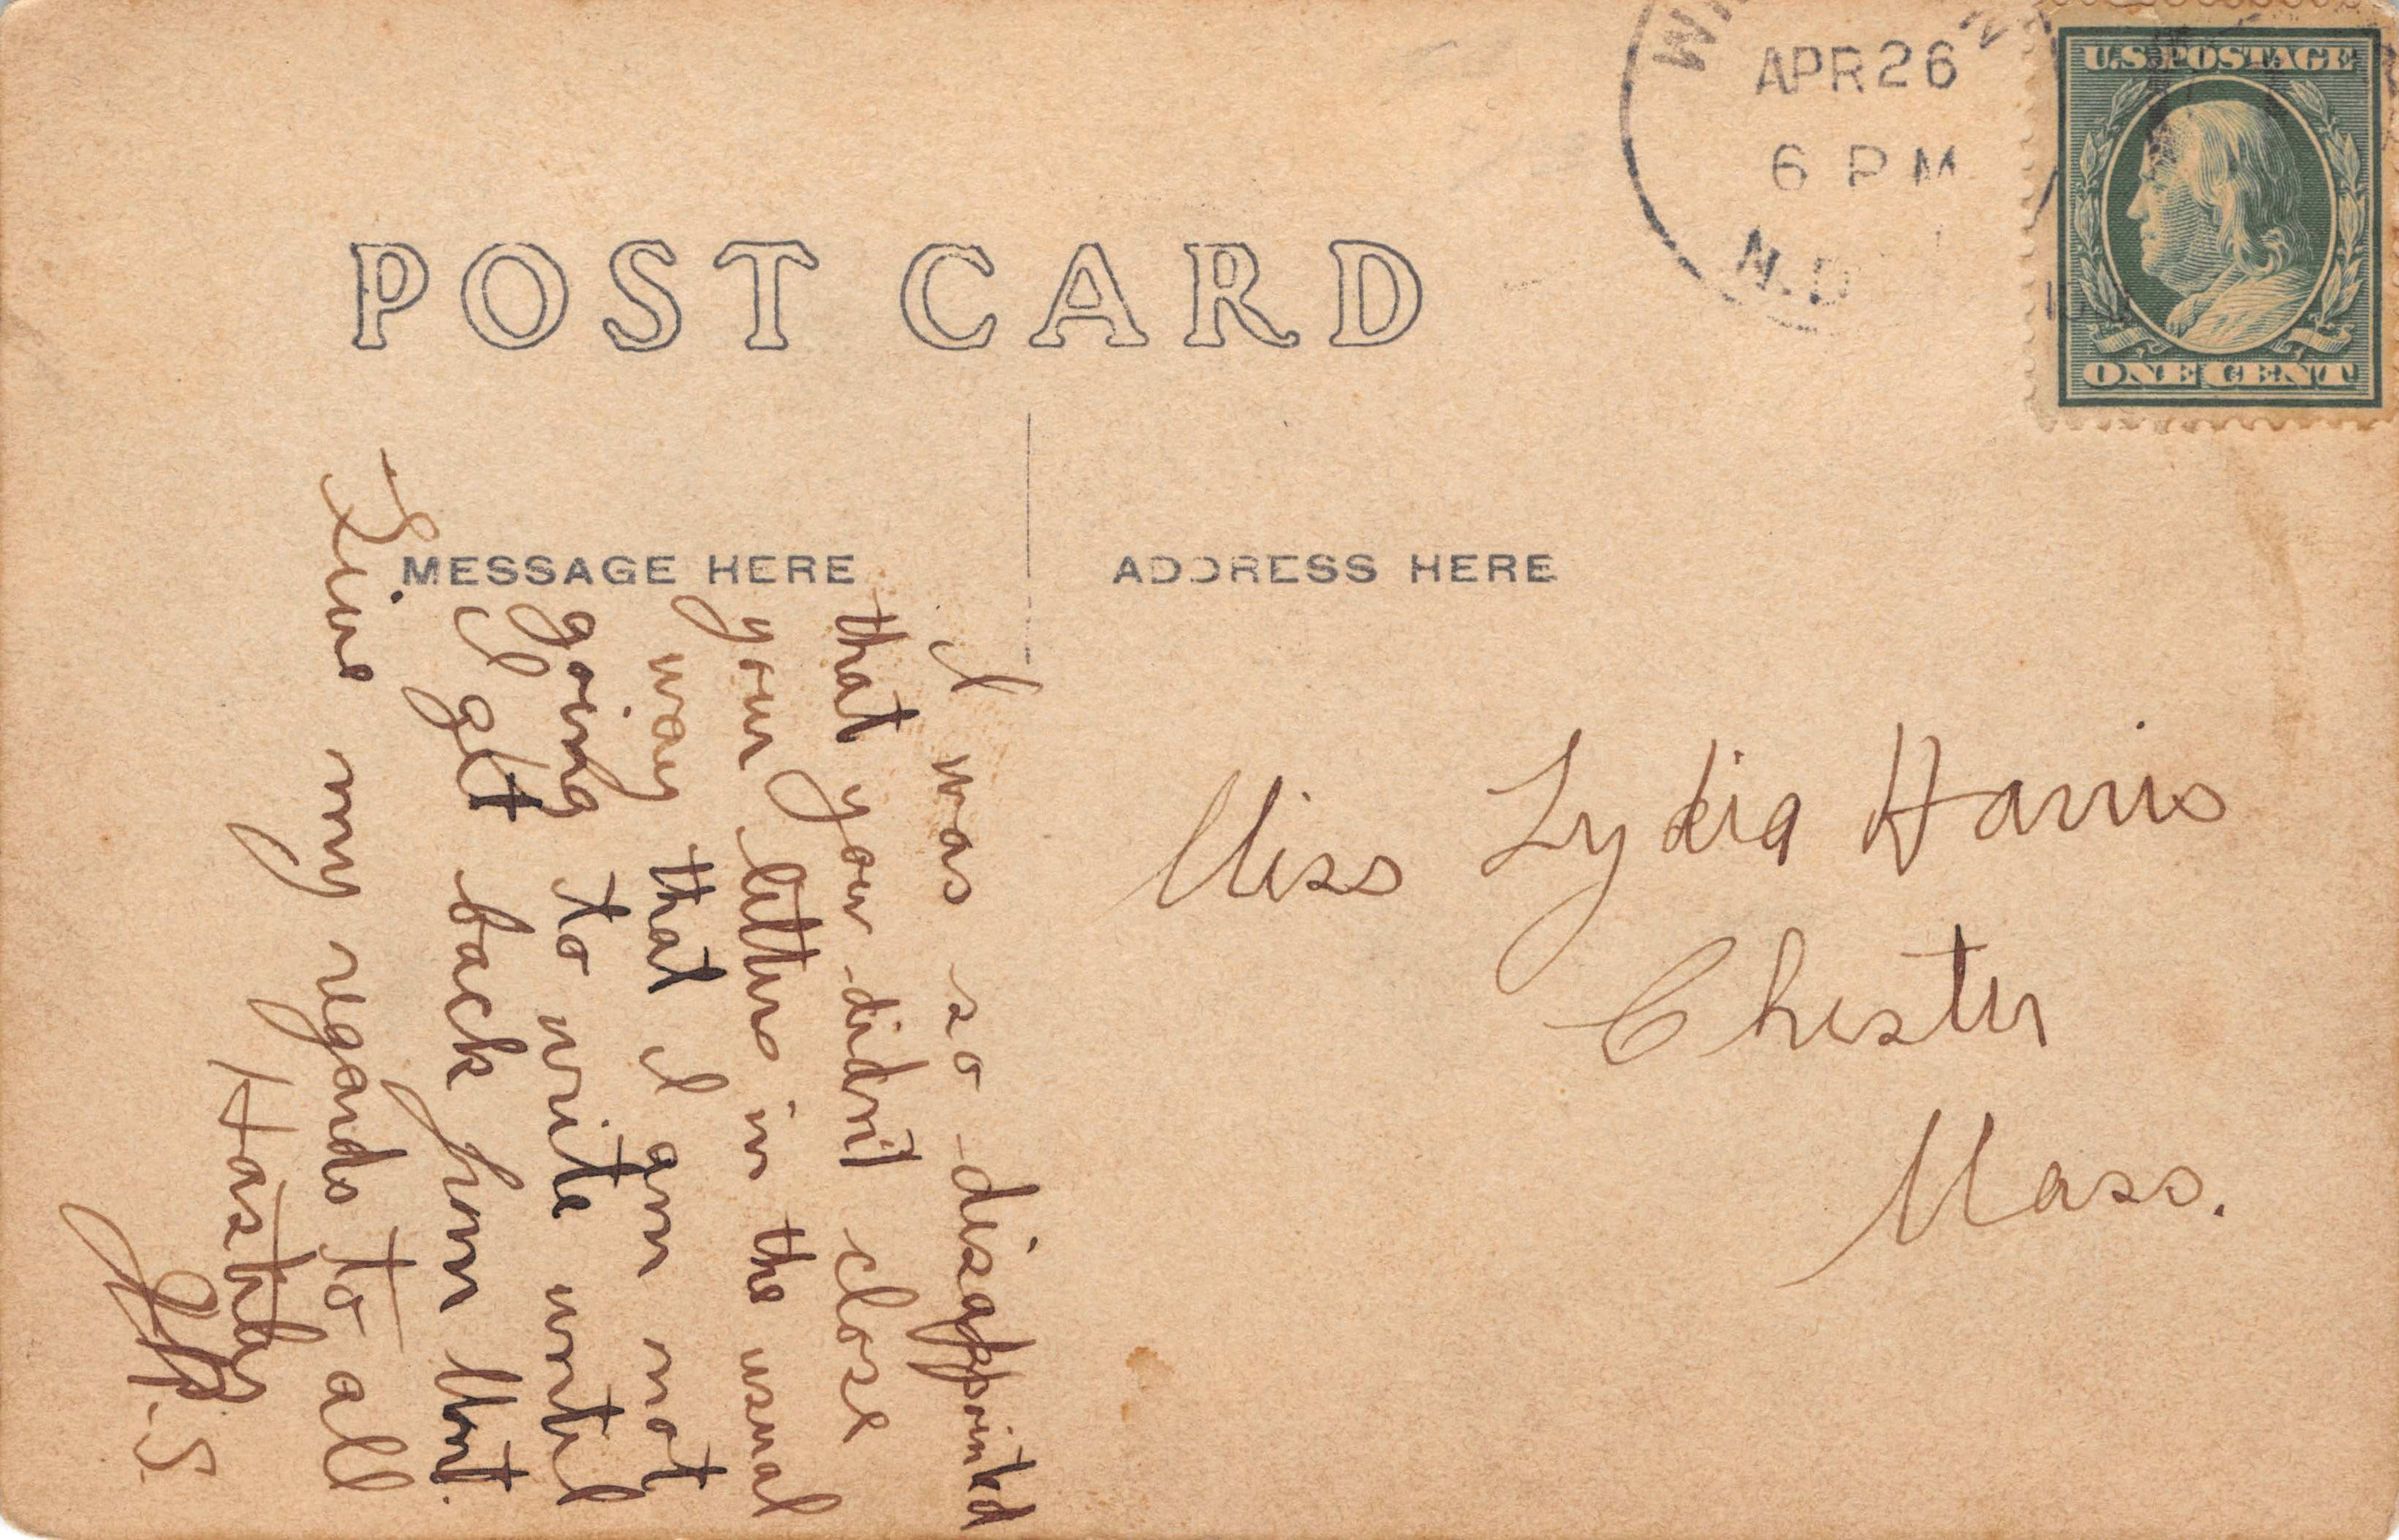 POST CARD
APR 26
6 PM
N.D
U.S. POSTAGE
ONE CENT
MESSAGE HERE
ADDRESS HERE
I was so disappointed
that you didn't close
your letters in the usual
way that I am not
going to write until
I get back from Mont.
Give my regards to all
Hastily
S.
Miss Lydia Harris
Chester
Mass.